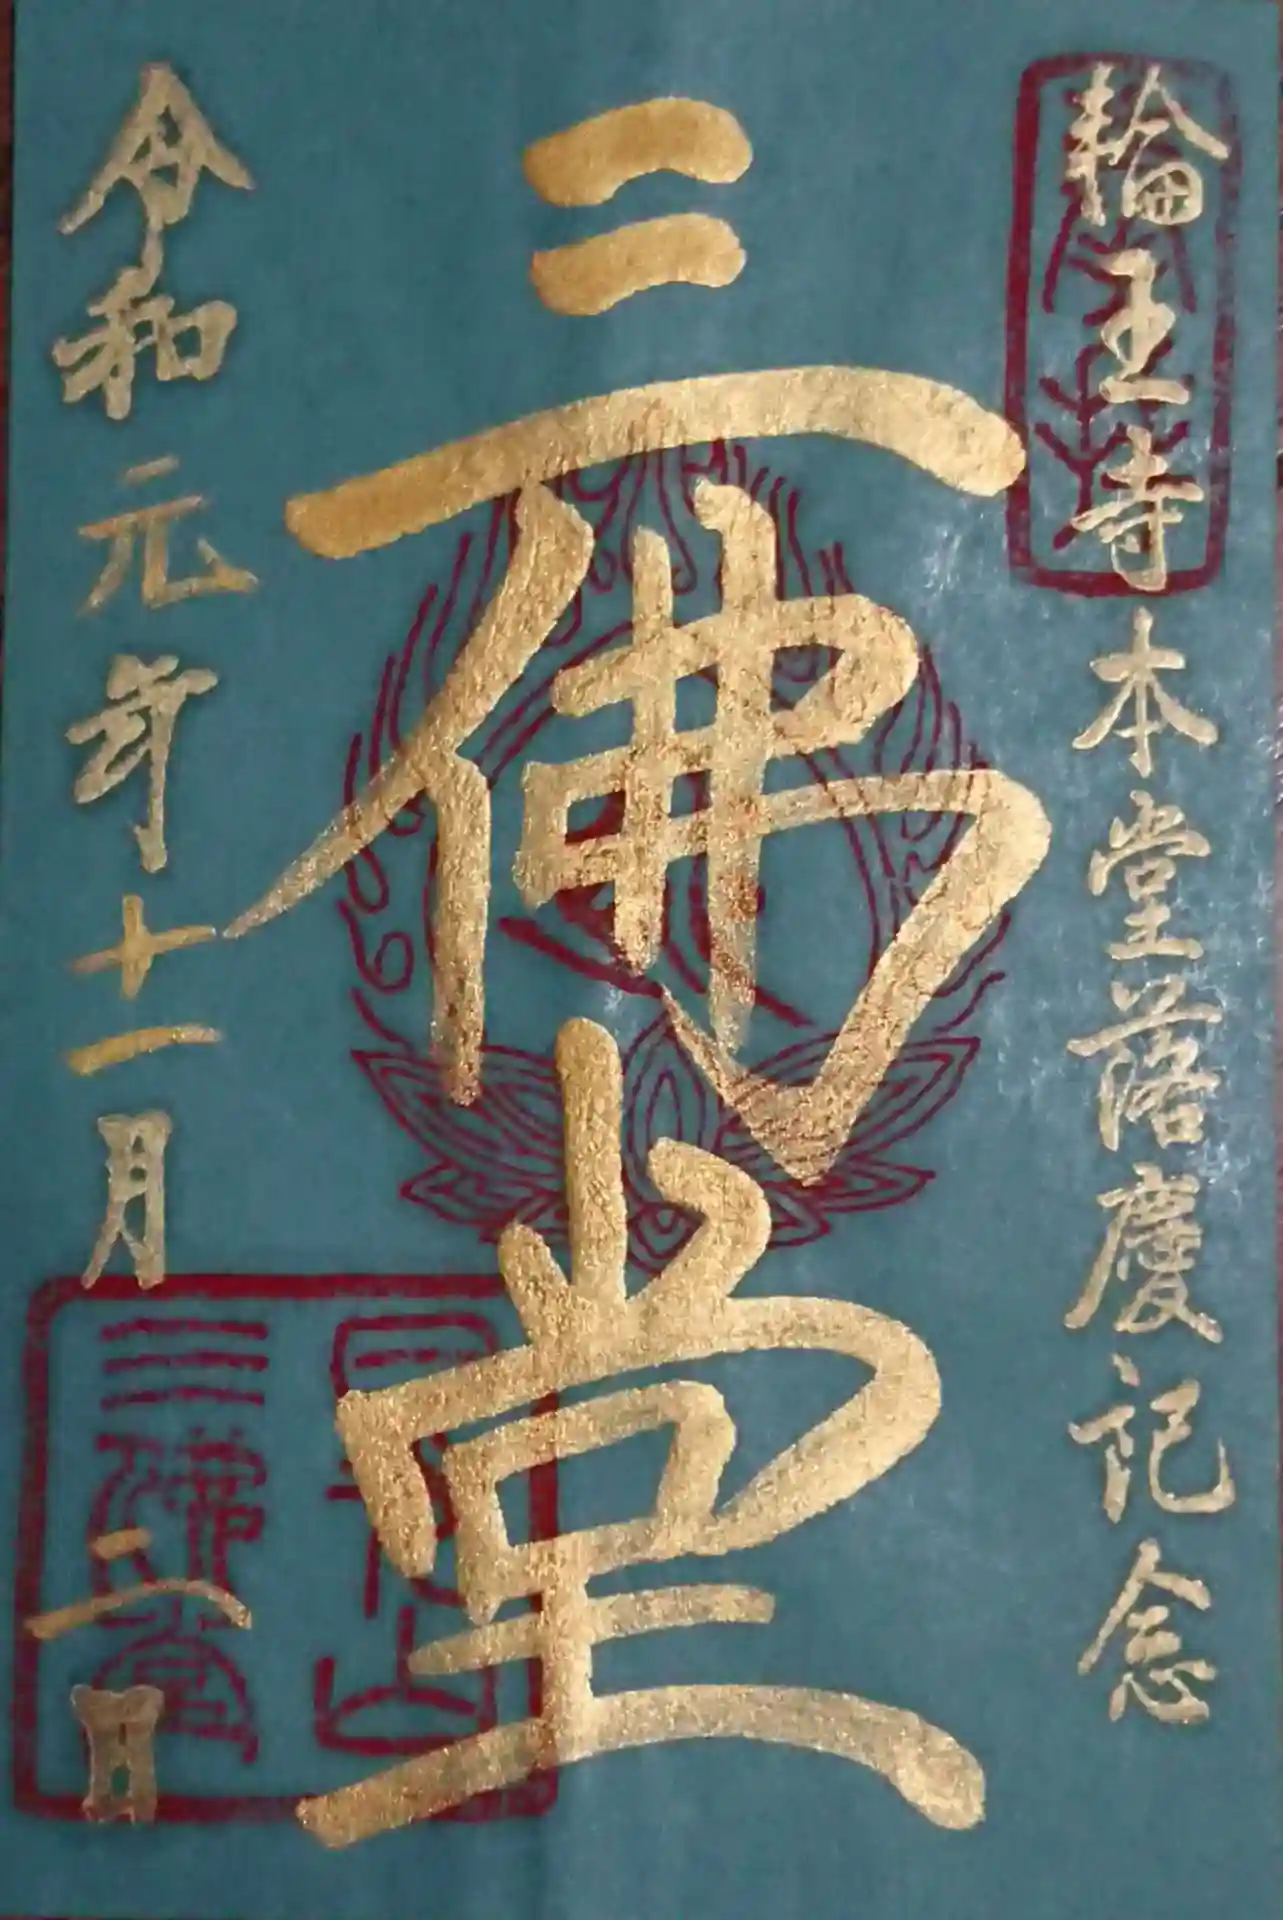 輪王寺本堂落慶記念
三佛堂
令和元年十一月二日
日光山
三佛堂